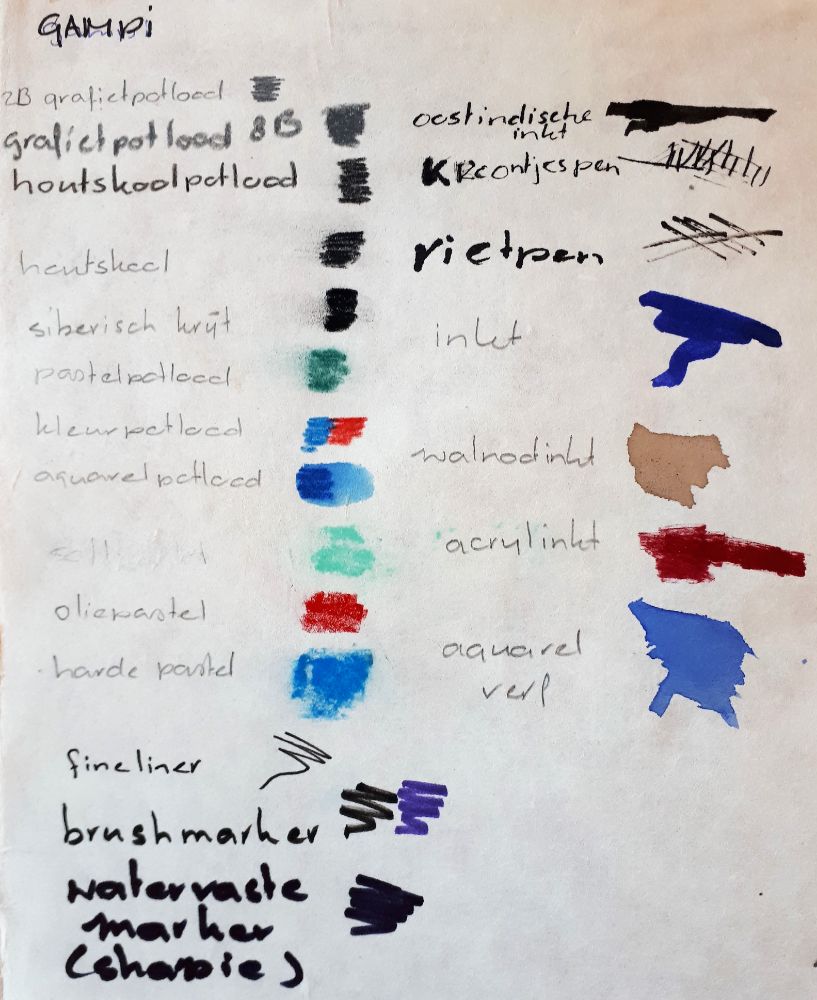 GAMPI
2B grafietpotlood
grafietpotlood 8B
houtskoolpotlood
houtskool
siberisch krijt
pastelpotlood
kleurpotlood
aquarelpotlood
oliepastel
harde pastel
fineliner
brushmarker
watervaste
marker
(sharpie)
oostindische
inkt
KRoontjespen
rietpen
inkt
walnootinkt
acrylinkt
aquarel
verf